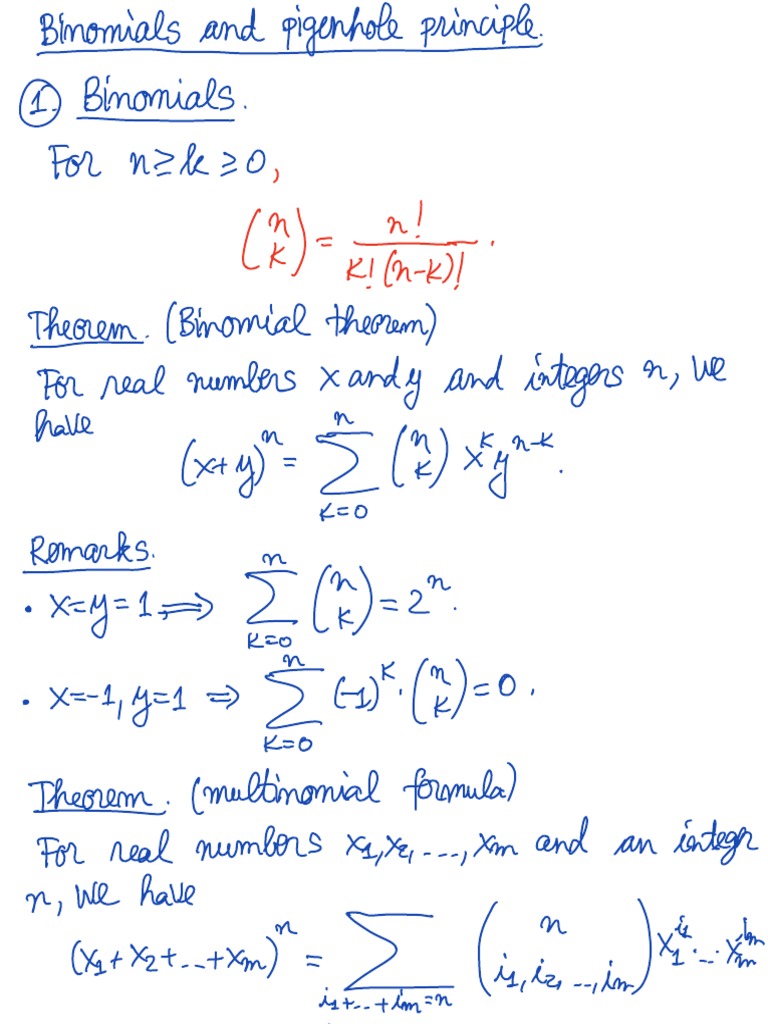 Binomials and pigenhole principle.
① Binomials.
For n ≥ k ≥ 0,
(n k) = n! / k! (n-k)! .
Theorem. (Binomial theorem)
For real numbers x and y and integers n, we
have
(x+y)^n = ∑_{k=0}^{n} (n k) x^k y^{n-k}.
Remarks.
• x=y=1, ⟹ ∑_{k=0}^{n} (n k) = 2^n.
• x=-1, y=1 ⟹ ∑_{k=0}^{n} (-1)^k · (n k) = 0.
Theorem. (multinomial formula)
For real numbers x_1, x_2, ..., x_m and an integr
n, we have
(x_1 + x_2 + ... + x_m)^n = ∑_{i_1+...+i_m=n} (n i_1, i_2, ..., i_m) x_1^{i_1} ... x_m^{i_m}